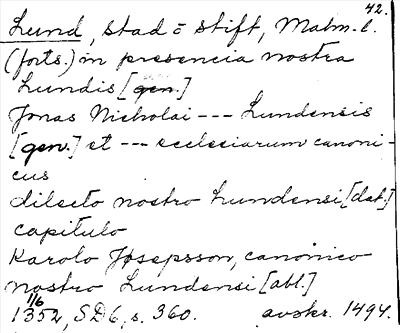 42.
Lund, stad o stift, Malm. l.
(forts.) in presencia nostra
Lundis [gen.]
Jonas Nicholai --- Lundensis
[gen.] et --- ecclesiarum canoni-
cus
dilecto nostro Lundensi [dat.]
capitulo
Karolo Jösepsson, canonico
nostro Lundensi [abl.]
1/6
1352, SD6, s. 360. avskr. 1494.